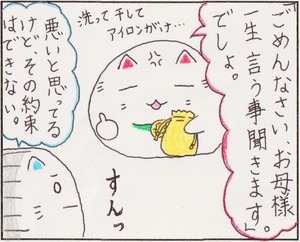 「ごめんなさい、お母様
一生言う事聞きます」
でしょ。
洗って干して
アイロンがけ…
悪いと思ってる
けど、その約束
はできない。
すんっ